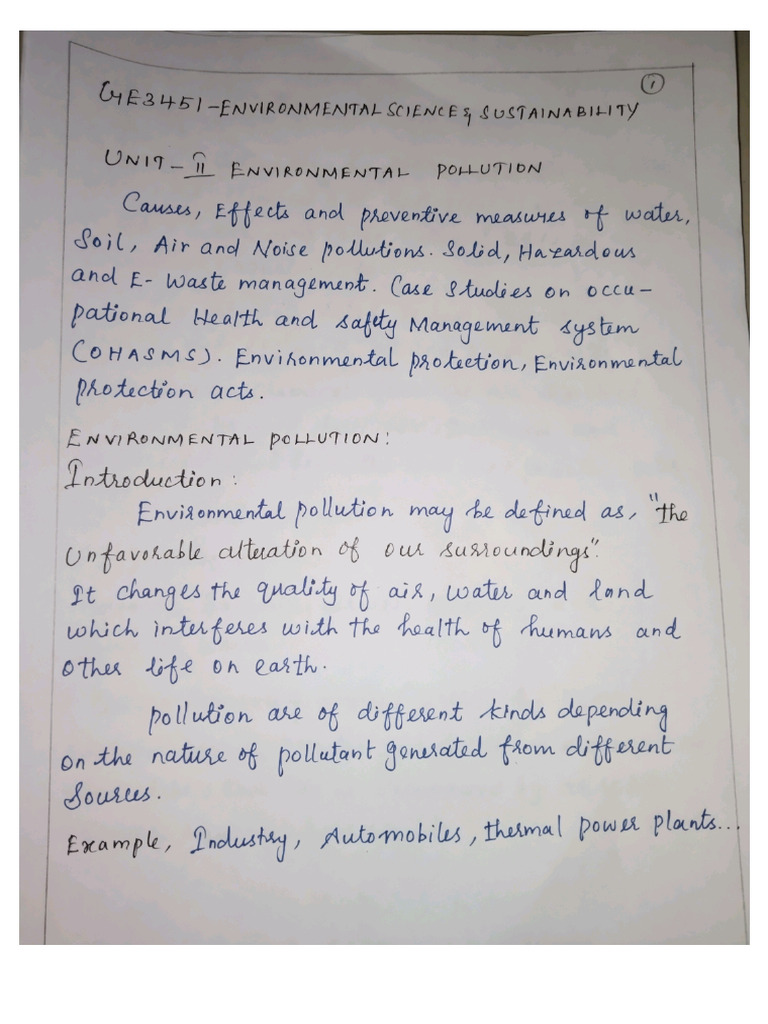 ①
GE3451-ENVIRONMENTAL SCIENCE & SUSTAINABILITY
UNIT-II ENVIRONMENTAL POLLUTION
Causes, Effects and preventive measures of water,
Soil, Air and Noise pollutions. Solid, Hazardous
and E-Waste management. Case Studies on occu-
pational Health and safety Management system
(OHASMS). Environmental protection, Environmental
protection acts.
ENVIRONMENTAL POLLUTION:
Introduction:
Environmental pollution may be defined as, "the
Unfavorable alteration of our surroundings".
It changes the quality of air, water and land
which interferes with the health of humans and
other life on earth.
pollution are of different kinds depending
on the nature of pollutant generated from different
Sources.
Example, Industry, Automobiles, thermal power plants...